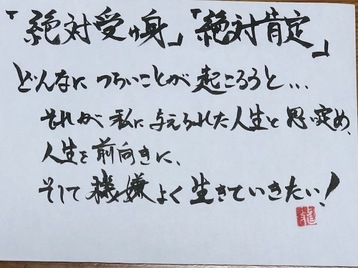 「絶対受け身」「絶対肯定」
どんなにつらいことが起ころうと…
それが私に与えられた人生と思い定め、
人生を前向きに、
そして機嫌よく生きていきたい！